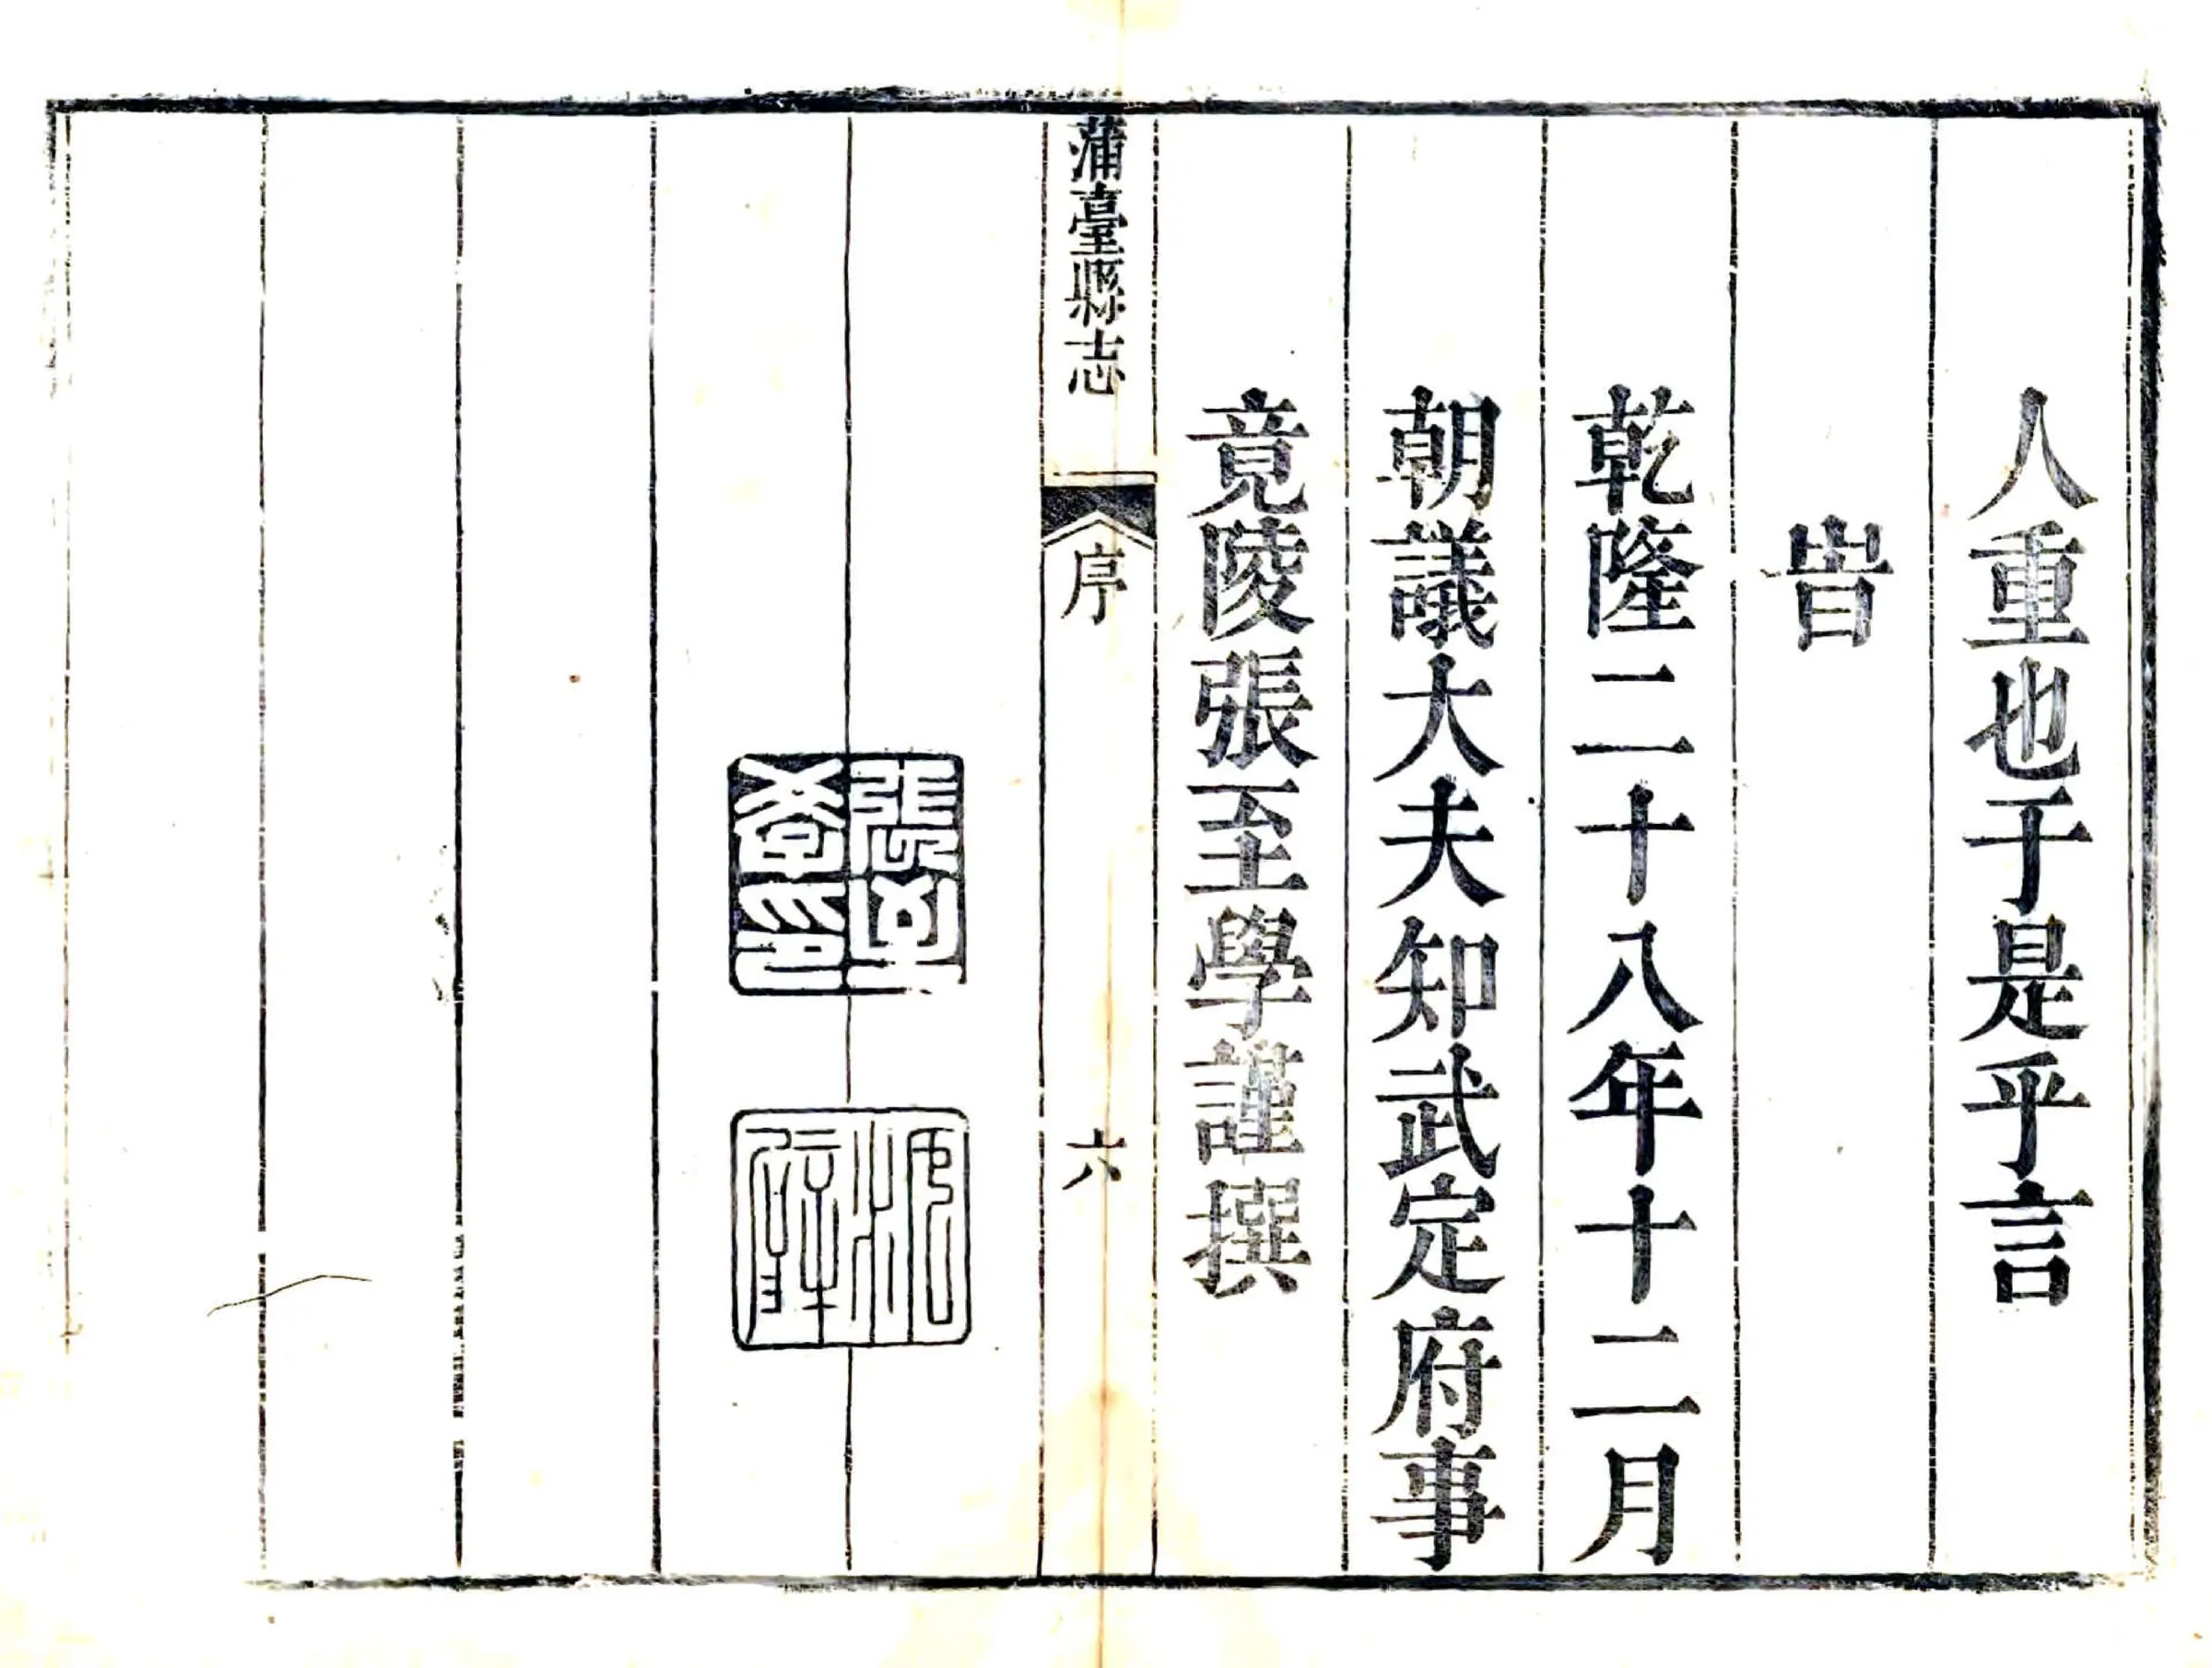 人重也于是乎言
旹
乾隆二十八年十二月
朝議大夫知武定府事
竟陵張至學謹撰
蒲臺縣志
序
六
張至學印